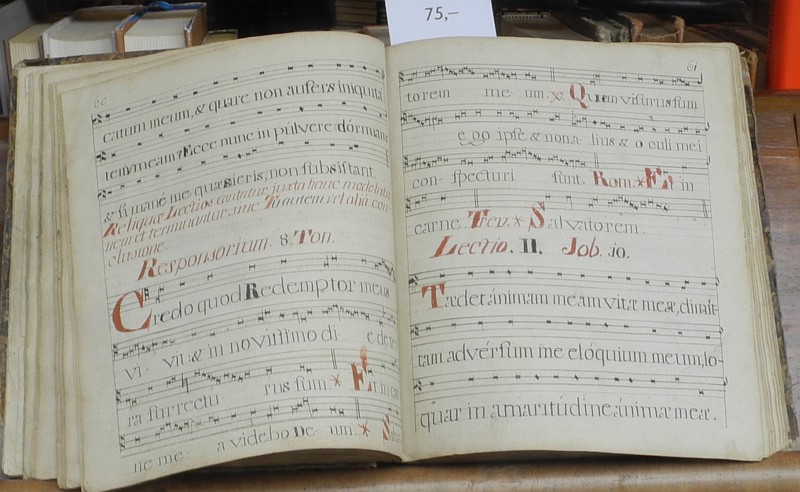 75,–
60
catum meum, & quare non aufers iniquita
tem meam? Ecce nunc in púlvere dórmiam
& si mané me quæsieris, non subsistant.
Reliquæ Lectios cantatur juxta hanc modulatio
nem et terminantur sine Tu autem vel alia con
clusione.
Responsorium. 8. Ton.
Credo quod Redemptor meus
vi- vit: & in novissimo di e de te
ra surrectu rus sum * Et in ca
ne me a videbo De um. * S
61
torem me um. v. Quem visurus sum
ego ipse & non a- lius & o culi mei
con- specturi sunt. Rom. * Et in
carne. Trev. * Salvatorem.
Lectio. II. Job. 10.
Tædet ánimam meam vitæ meæ, dimít-
tam advérsum me elóquium meum, lo-
quar in amaritúdine ánimæ meæ.